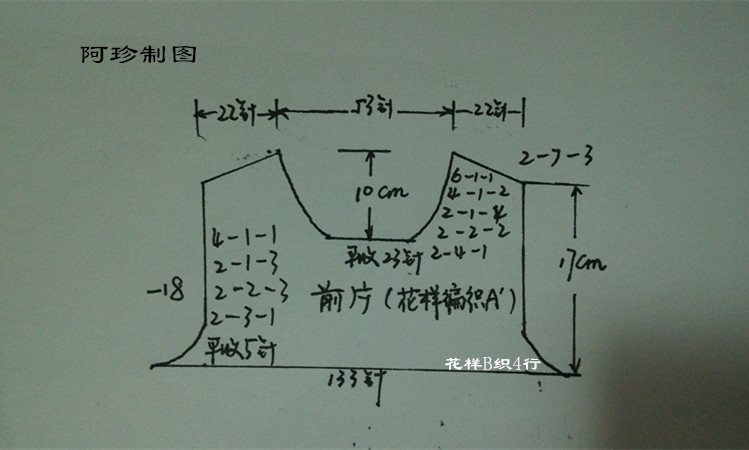 阿珍制图
22针
53针
22针
2-7-3
10cm
6-1-1
4-1-2
2-1-4
2-2-2
2-4-1
平收23针
17cm
4-1-1
2-1-3
2-2-3
2-3-1
平收5针
-18
前片(花样编织A')
花样B织4行
133针